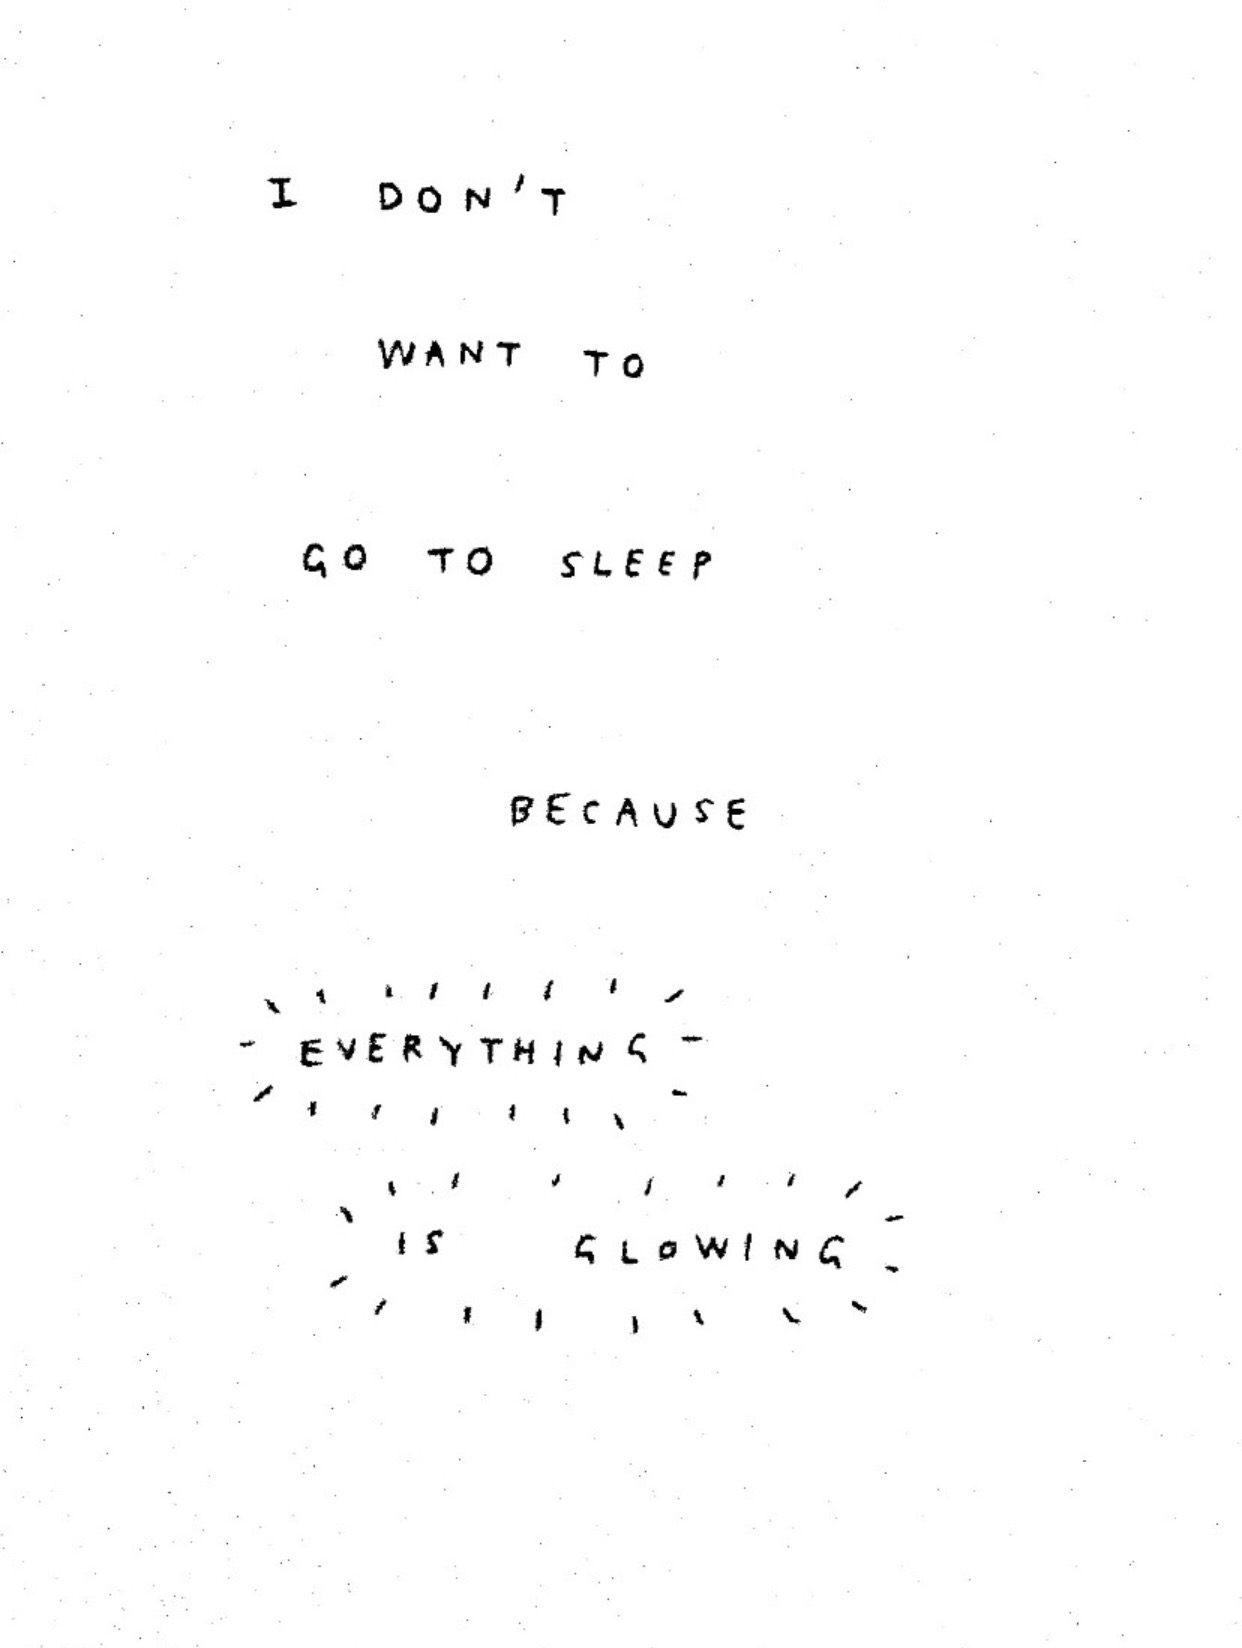 I DON'T
WANT TO
GO TO SLEEP
BECAUSE
EVERYTHING
IS GLOWING